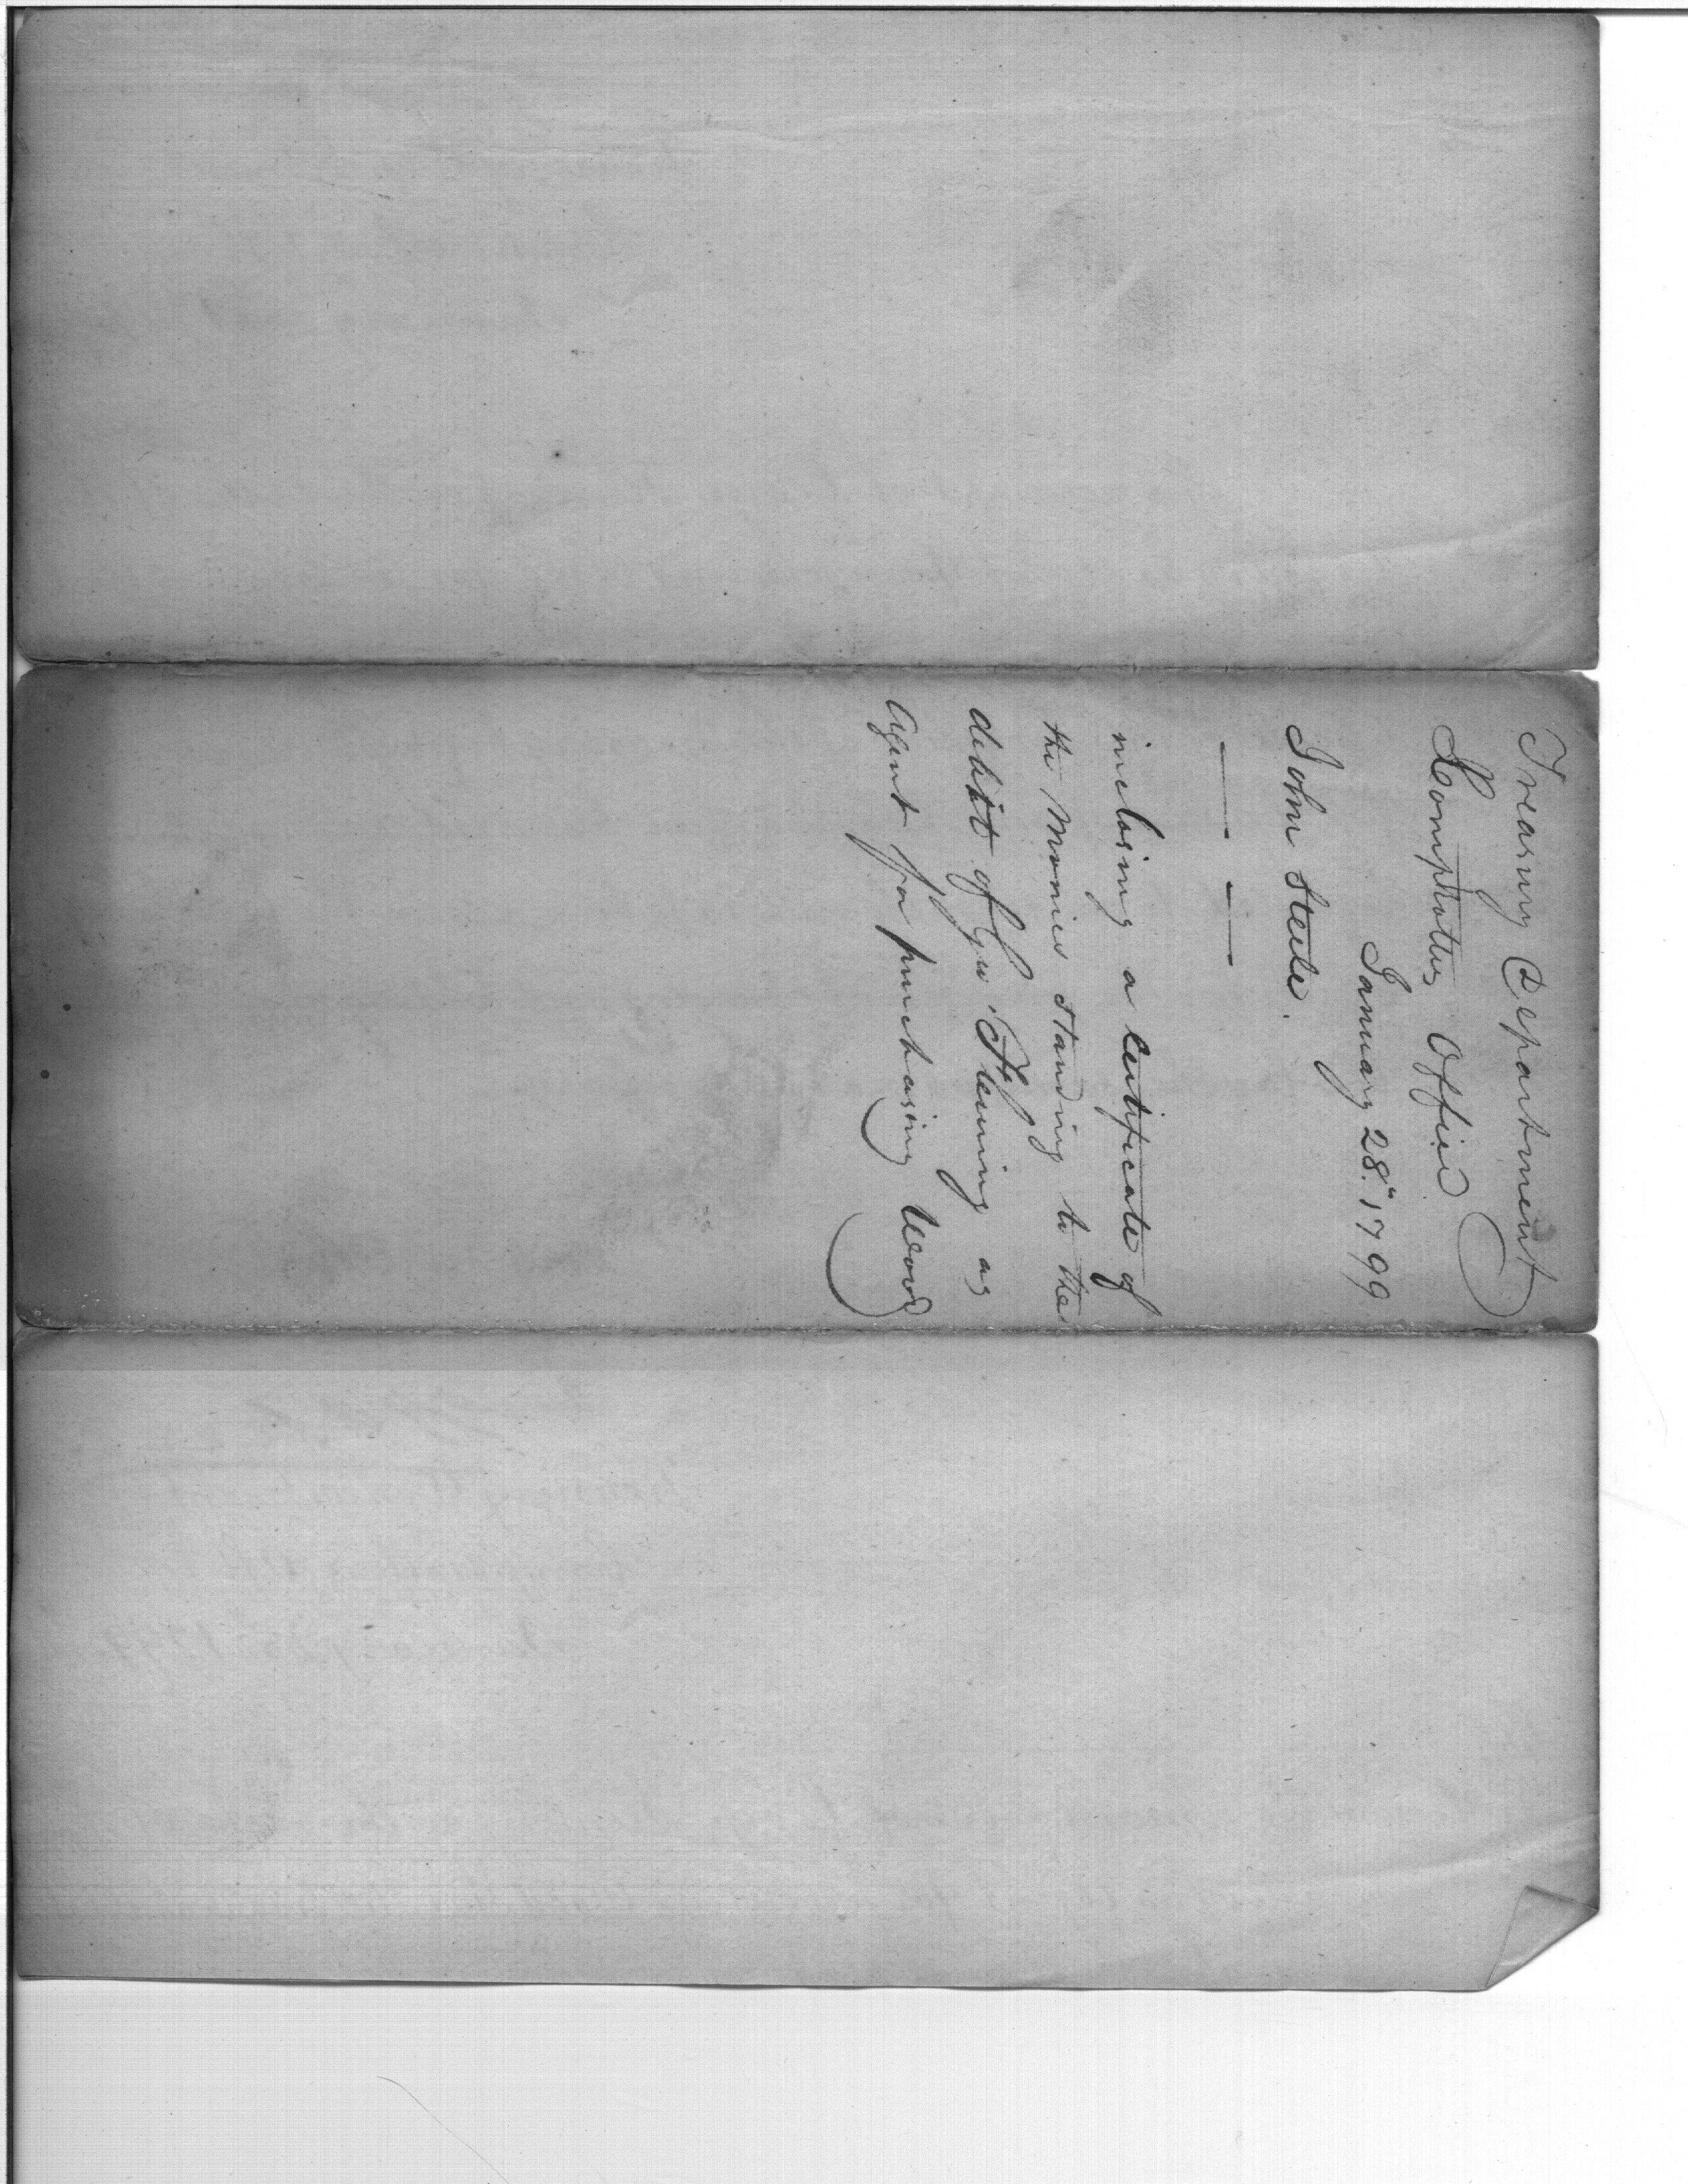 Treasury Department
Comptrollers Office
January 28th 1799
John Steele.
inclosing a Certificate of
the Monies standing to the
debit of Fleming as
Agent for purchasing Wood